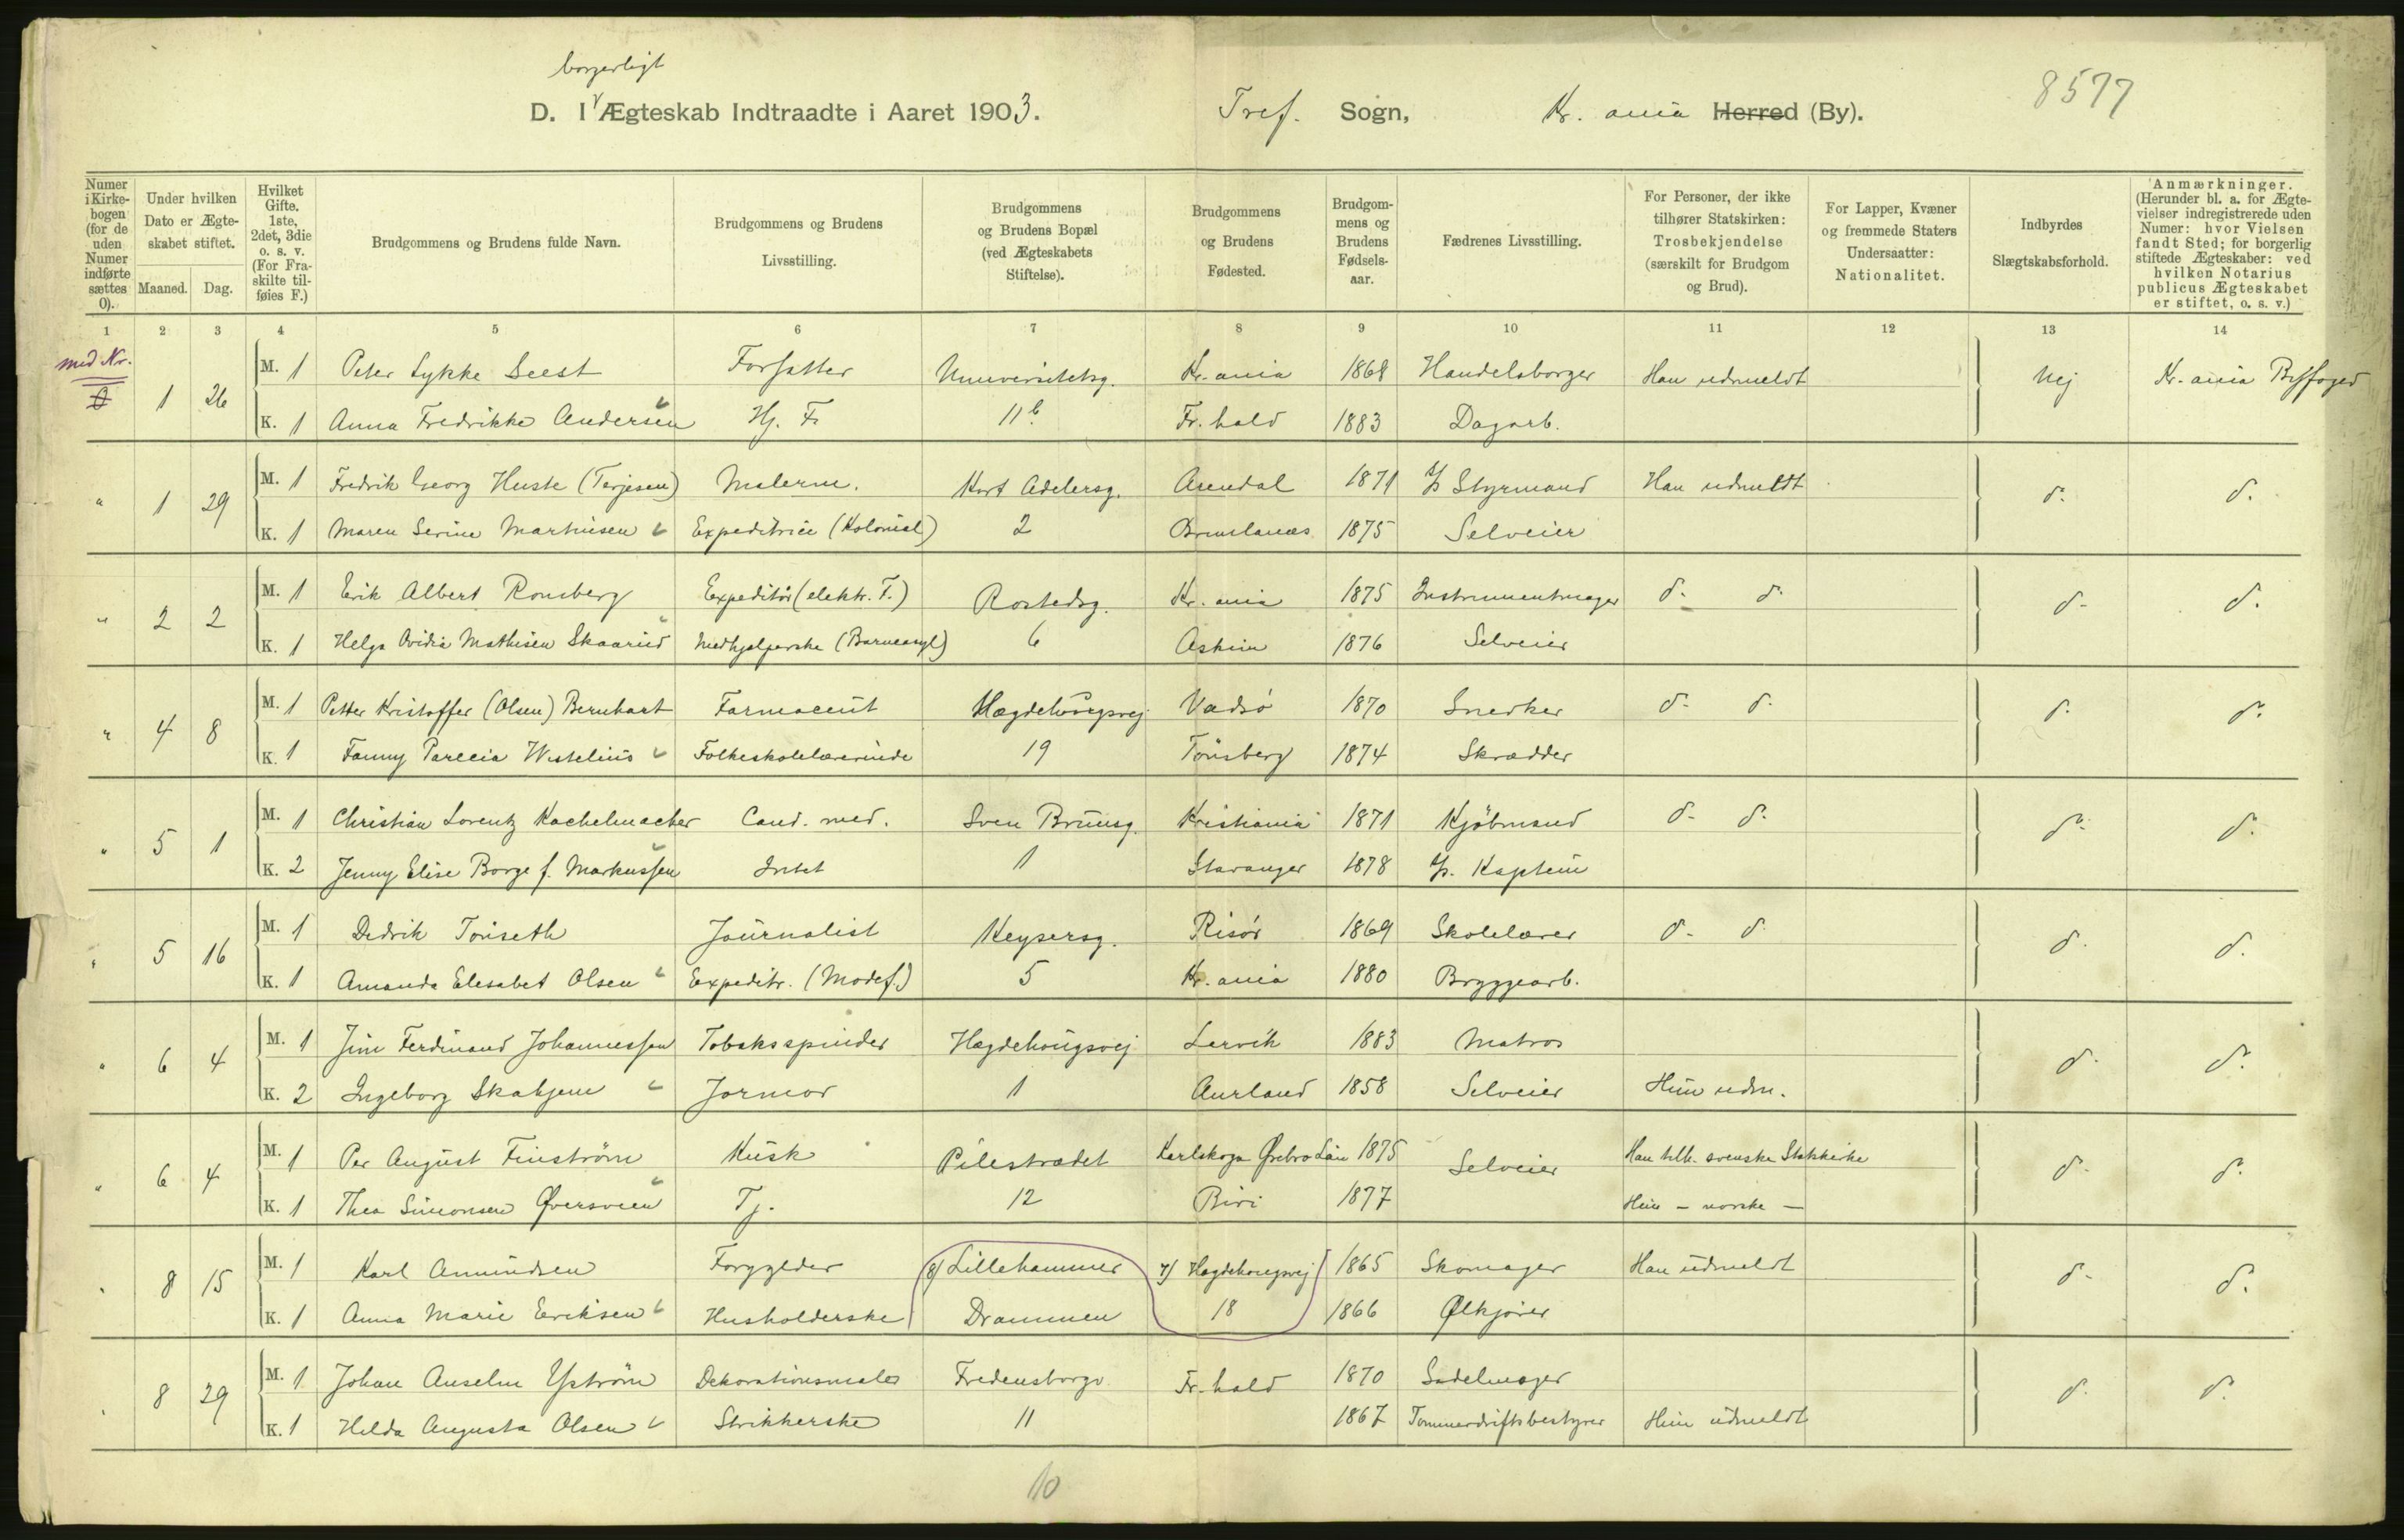 borgerligt
D. I Ægteskab Indtraadte i Aaret 1903. Tref. Sogn, Kr. ania Herred (By). 8577
Numer i Kirkebogen (for de uden Numer indførte sættes 0).
Under hvilken Dato er Ægteskabet stiftet.
Maaned. Dag.
Hvilket Gifte. 1ste, 2det, 3die o. s. v. (For Fraskilte tilføies F.)
Brudgommens og Brudens fulde Navn.
Brudgommens og Brudens Livsstilling.
Brudgommens og Brudens Bopæl (ved Ægteskabets Stiftelse).
Brudgommens og Brudens Fødested.
Brudgommens og Brudens Fødselsaar.
Fædrenes Livsstilling.
For Personer, der ikke tilhører Statskirken: Trosbekjendelse (særskilt for Brudgom og Brud).
For Lapper, Kvæner og fremmede Staters Undersaatter: Nationalitet.
Indbyrdes Slægtskabsforhold.
Anmærkninger. (Herunder bl. a. for Ægtevielser indregistrerede uden Numer: hvor Vielsen fandt Sted; for borgerlig stiftede Ægteskaber: ved hvilken Notarius publicus Ægteskabet er stiftet, o. s. v.)
1 2 3 4 5 6 7 8 9 10 11 12 13 14
med Nr.
0 1 26
M. 1 Peter Lykke Seest Forfatter Universitetsg. Kr. ania 1868 Handelsborger Han udmeldt Nej Kr. ania Byfoged
K. 1 Anna Fredrikke Andersen Hj. F. 11b. Fr. hald 1883 Dagarb.
" 1 29
M. 1 Fredrik Georg Huste (Terjesen) Malerm. Kort Adelersg. Arendal 1871 Styrmand Han udmeldt d. d.
K. 1 Maren Serine Marthisen Expeditrice (Kolonial) 2 Brunlanæs 1875 Selveier
" 2 2
M. 1 Erik Albert Ronsberg Expeditør (elektr. F.) Rostedsg. Kr. ania 1875 Instrumentmager d. d. d. d.
K. 1 Helga Ovidia Mathisen Skaarud Medhjælperske (Barneasyl) 6 Askim 1876 Selveier
" 4 8
M. 1 Petter Kristoffer (Olsen) Bernhart Farmaceut Hægdehougsvej Vadsø 1870 Snedker d. d. d. d.
K. 1 Fanny Westelius Folkeskolelærerinde 19 Tønsberg 1874 Skrædder
" 5 1
M. 1 Christian Lorentz Kachelmacher Cand. med. Sven Brunsg. Kristiania 1871 Kjøbmand d. d. d. d.
K. 2 Jenny Elise Borge f. Markussen Intet 1 Stavanger 1878 Kaptein
" 5 16
M. 1 Didrik Tønseth Journalist Keysersg. Risør 1869 Skolelærer d. d. d. d.
K. 1 Amanda Elesabet Olsen Expeditr. (Modef.) 5 Kr. ania 1880 Bryggearb.
" 6 4
M. 1 Jim Ferdinand Johannessen Tobaksspinder Hægdehougsvej Lervik 1883 Matros d. d.
K. 2 Ingeborg Skahjem Jormor 1 Aurland 1858 Selveier Hun udm.
" 6 4
M. 1 Per August Finström Kusk Pilestrædet Karlskoga Ørebro Län 1875 Selveier Han tilh. svenske Statskirke d. d.
K. 1 Thea Simonsen Øversveen Tj. 12 Biri 1877 Hun - norske -
" 8 15
M. 1 Karl Amundsen Forgylder 8) Lillehammer 7) Hægdehougsvej 1865 Skomager Han udmeldt d. d.
K. 1 Anna Marie Eriksen Husholderske Drammen 18 1866 Ølkjører
" 8 29
M. 1 Johan Anselm Yström Dekorationsmaler Fredensborgv. Fr. hald 1870 Sadelmager d. d.
K. 1 Hilda Augusta Olsen Strikkerske 11 1867 Tømmerdriftsbestyrer Hun udmeldt
10